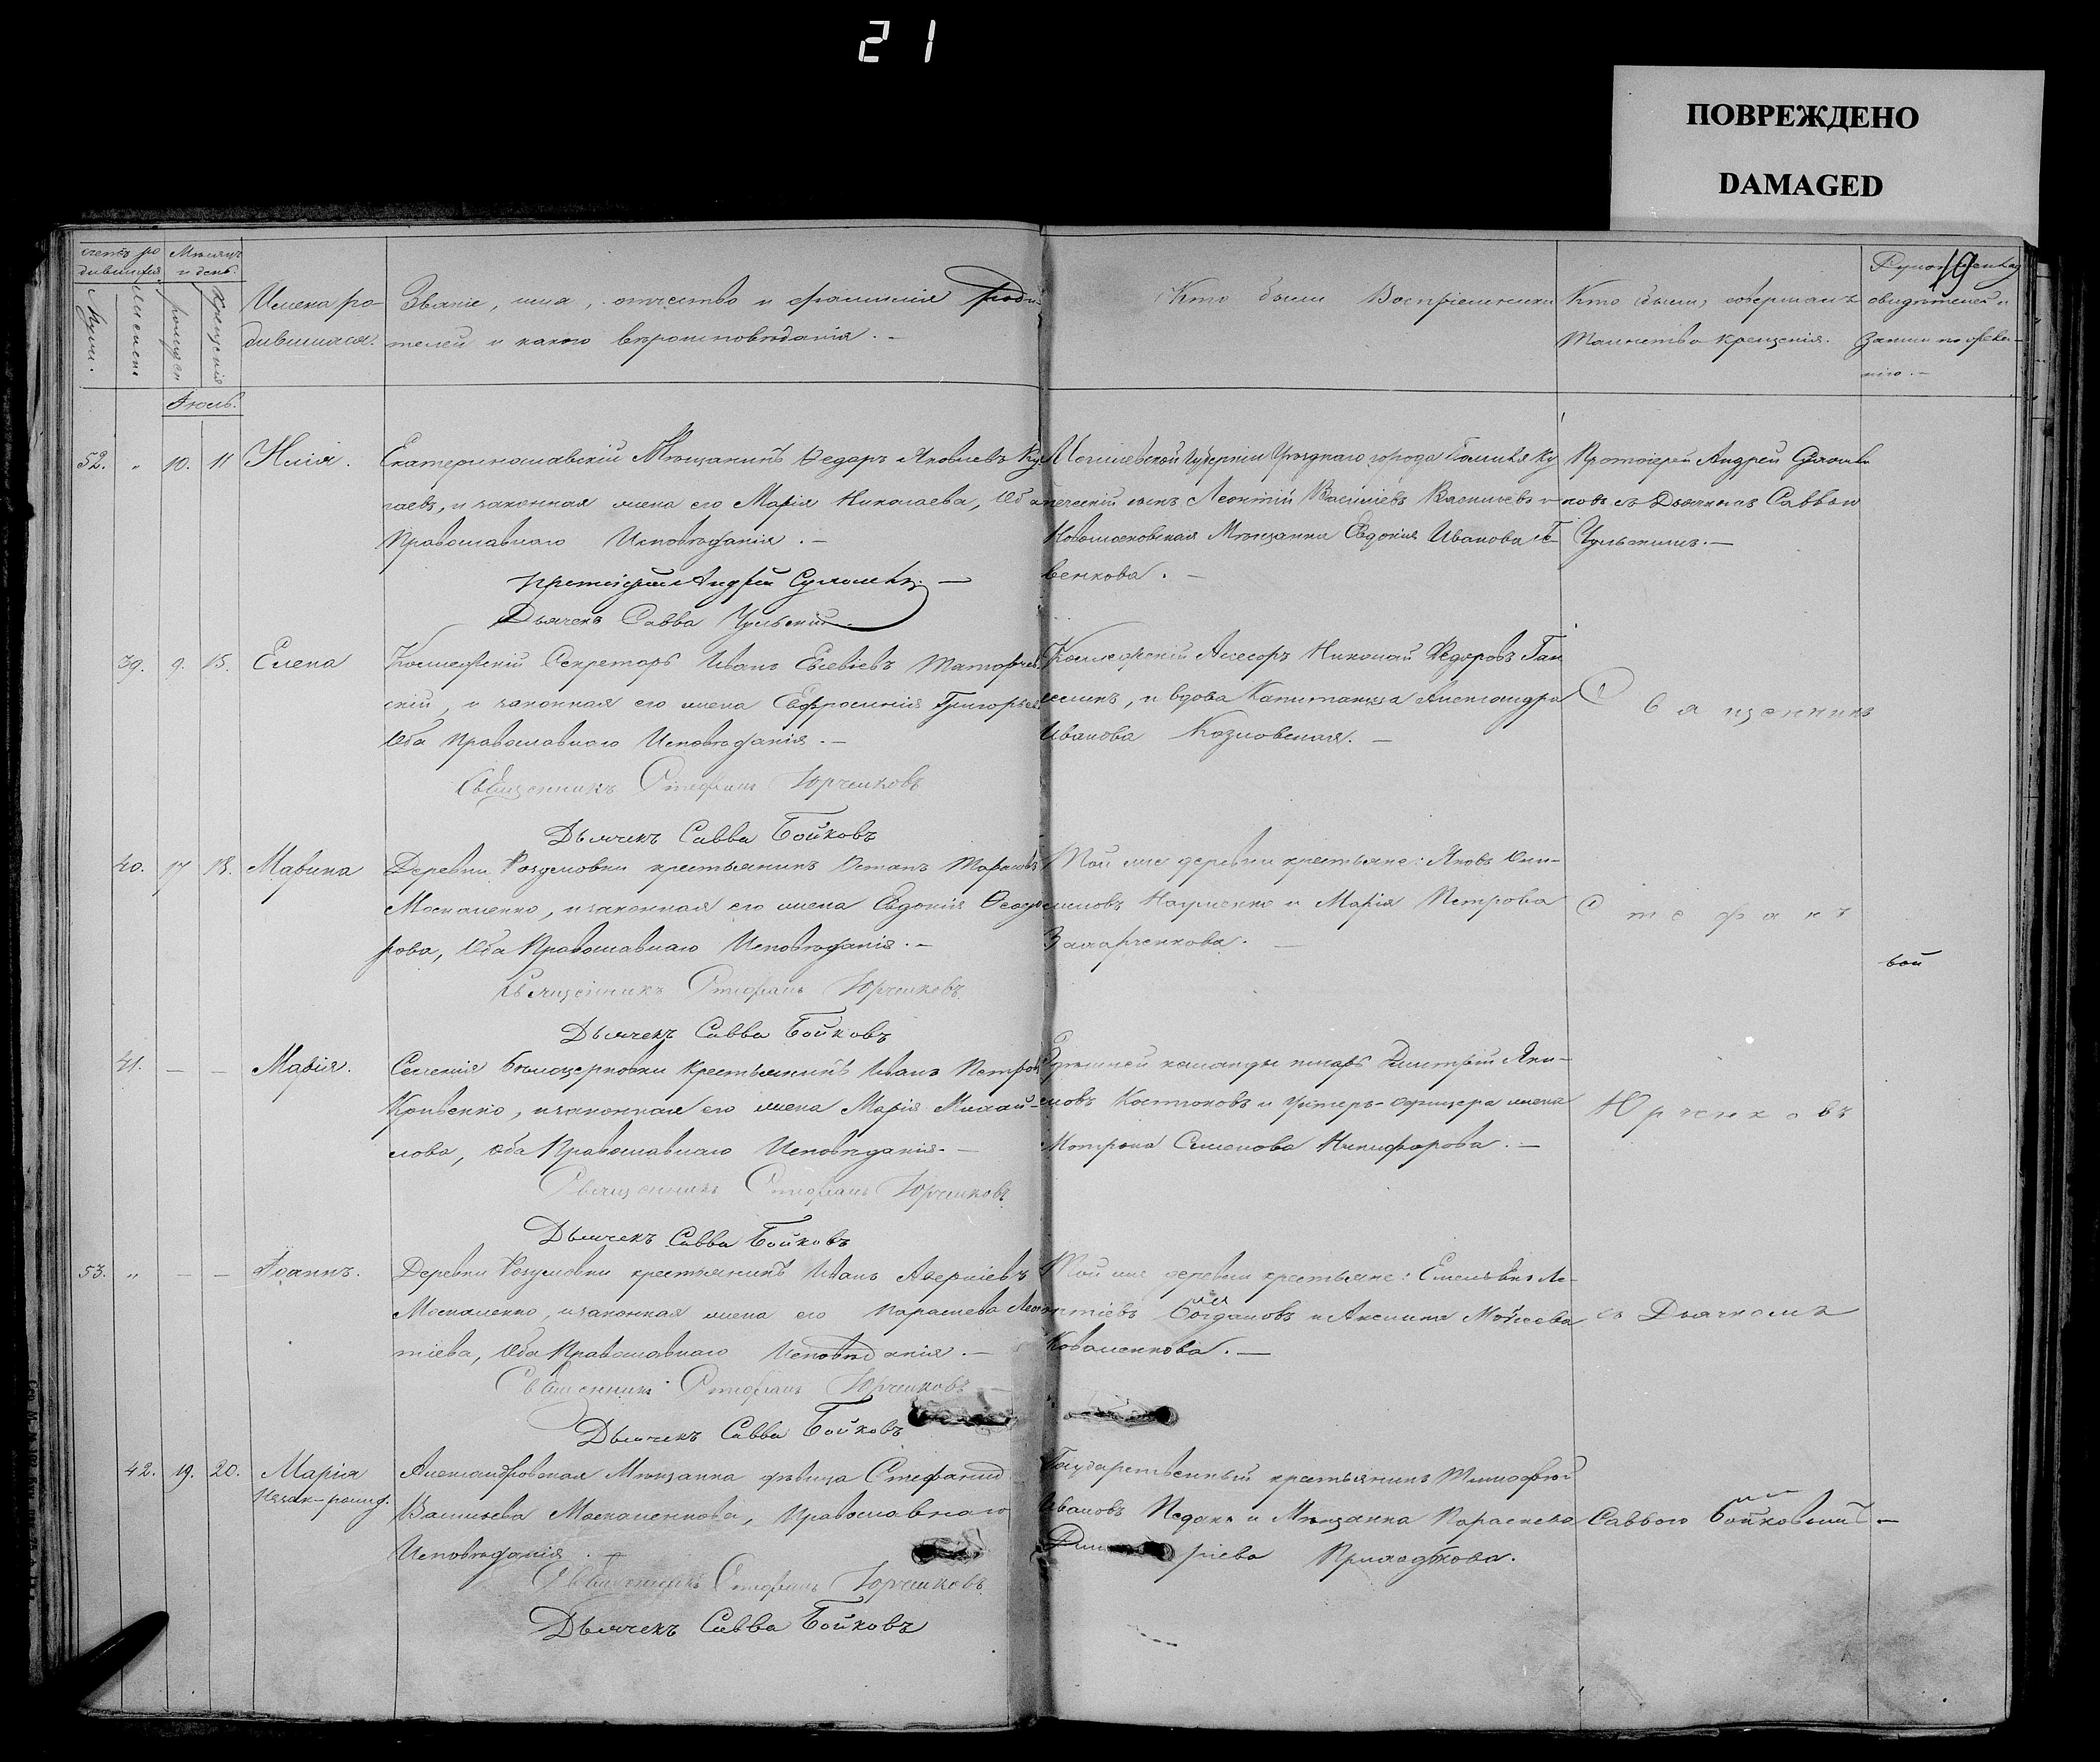 21
ПОВРЕЖДЕНО
DAMAGED
19
Счетъ ро
дившихся
Мѣсяцъ
и день.
Муж.
Женск
рожден
крещенія
Имена ро-
дившихся.
Званіе, имя, отчество и фамилія роди-
телей и какого вѣроисповѣданія. -
Кто были Воспріемники
Кто совершалъ
Таинство крещенія.
свидѣтелей
записи по
Іюль.
52. " 10. 11 Илія.
Екатеринославскій Мѣщанинъ Ѳедоръ Яковлевъ
гаевъ, и законная жена его Марія Николаева, Оба
Православнаго Исповѣданія. -
Протоіерей Андрей
Дьячекъ Савва
Губерніи Уѣзднаго города
печескій сынъ Леонтій Васильевъ Васильевъ и
Новомосковская Мѣщанка Евдокія Иванова
венкова. -
Протоіерей Андрей
новъ съ Дьячкомъ Саввою
39. 9. 15. Елена
Коллежскій Секретарь Иванъ
скій, и законная его жена Евфросинія Григорьева
Оба Православнаго Исповѣданія. -
Священникъ Стефанъ Юрченковъ
Дьячекъ Савва Бойковъ
Коллежскій Асесоръ Николай Федоровъ
и вдова Капитанша Александра
Иванова Козловская. -
Священникъ
40. 17 18. Марина
Деревни Розумовки крестьянинъ Остапъ Тарасовъ
Москаленко, и законная его жена Евдокія Ѳеодо
рова, Оба Православнаго Исповѣданія. -
Священникъ Стефанъ Юрченковъ
Дьячекъ Савва Бойковъ
Той же деревни крестьяне: Яковъ
Науменко и Марія Петрова
Стефанъ
вой
41. - - Марія.
Селенія Бѣлоцерковки Крестьянинъ Иванъ Петровъ
Кривенко, и законная его жена Марія Михай-
лова, оба Православнаго Исповѣданія. -
Священникъ Стефанъ Юрченковъ
Дьячекъ Савва Бойковъ
команды писарь Дмитрій Яки-
мовъ Костюковъ и Унтеръ-офицера жена
Мотрона Семенова Никифорова. -
Юрченковъ
53. " - - Іоаннъ.
Деревни Розумовки крестьянинъ Иванъ
Москаленко, и законная жена его Параскева Леон
тіева, Оба Православнаго Исповѣданія. -
Священникъ Стефанъ Юрченковъ
Дьячекъ Савва Бойковъ
Той же деревни крестьяне: Емельянъ Ле-
онтіевъ Богдановъ и Аксинія Мойсеева
Коваленкова. -
съ Дьячкомъ
42. 19. 20. Марія
Незак-рожд.
Александровская Мѣщанка дѣвица Стефанида
Васильева Москаленкова, Православнаго
Исповѣданія. -
Священникъ Стефанъ Юрченковъ
Дьячекъ Савва Бойковъ
Государственный крестьянинъ Тимофей
Ивановъ Педанъ и Мѣщанка Параскева
Приходькова.
Саввою Бойковымъ -